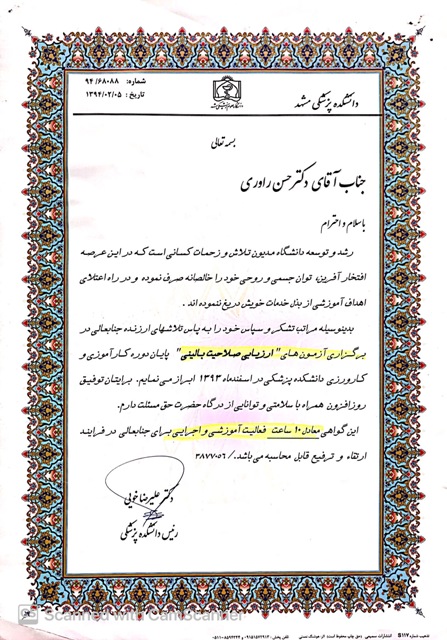 شماره: ۹۴/۶۸۰۸۸
تاریخ: ۱۳۹۴/۰۲/۰۵
دانشکده پزشکی مشهد
بسمه تعالی
جناب آقای دکتر حسن راوری
با سلام و احترام
رشد و توسعه دانشگاه مدیون تلاش و زحمات کسانی است که در این عرصه
افتخار آفرین، توان جسمی و روحی خود را خالصانه صرف نموده و در راه اعتلای
اهداف آموزشی از بذل خدمات خویش دریغ ننموده اند .
بدینوسیله مراتب تشکر و سپاس خود را به پاس تلاشهای ارزنده جنابعالی در
برگزاری آزمون های "ارزیابی صلاحیت بالینی" پایان دوره کارآموزی و
کارورزی دانشکده پزشکی در اسفندماه ۱۳۹۳ ابراز می نمایم. برایتان توفیق
روزافزون همراه با سلامتی و توانایی از درگاه حضرت حق مسئلت دارم.
این گواهی معادل ۱۰ ساعت فعالیت آموزشی و اجرایی برای جنابعالی در فرایند
ارتقاء و ترفیع قابل محاسبه می باشد./ ۳۸۷۷۰۵۶
دکتر علیرضا خویی
رئیس دانشکده پزشکی
Scanned with CamScanner
تذهیب شماره S۱۱۷ انتشارات صمیمی